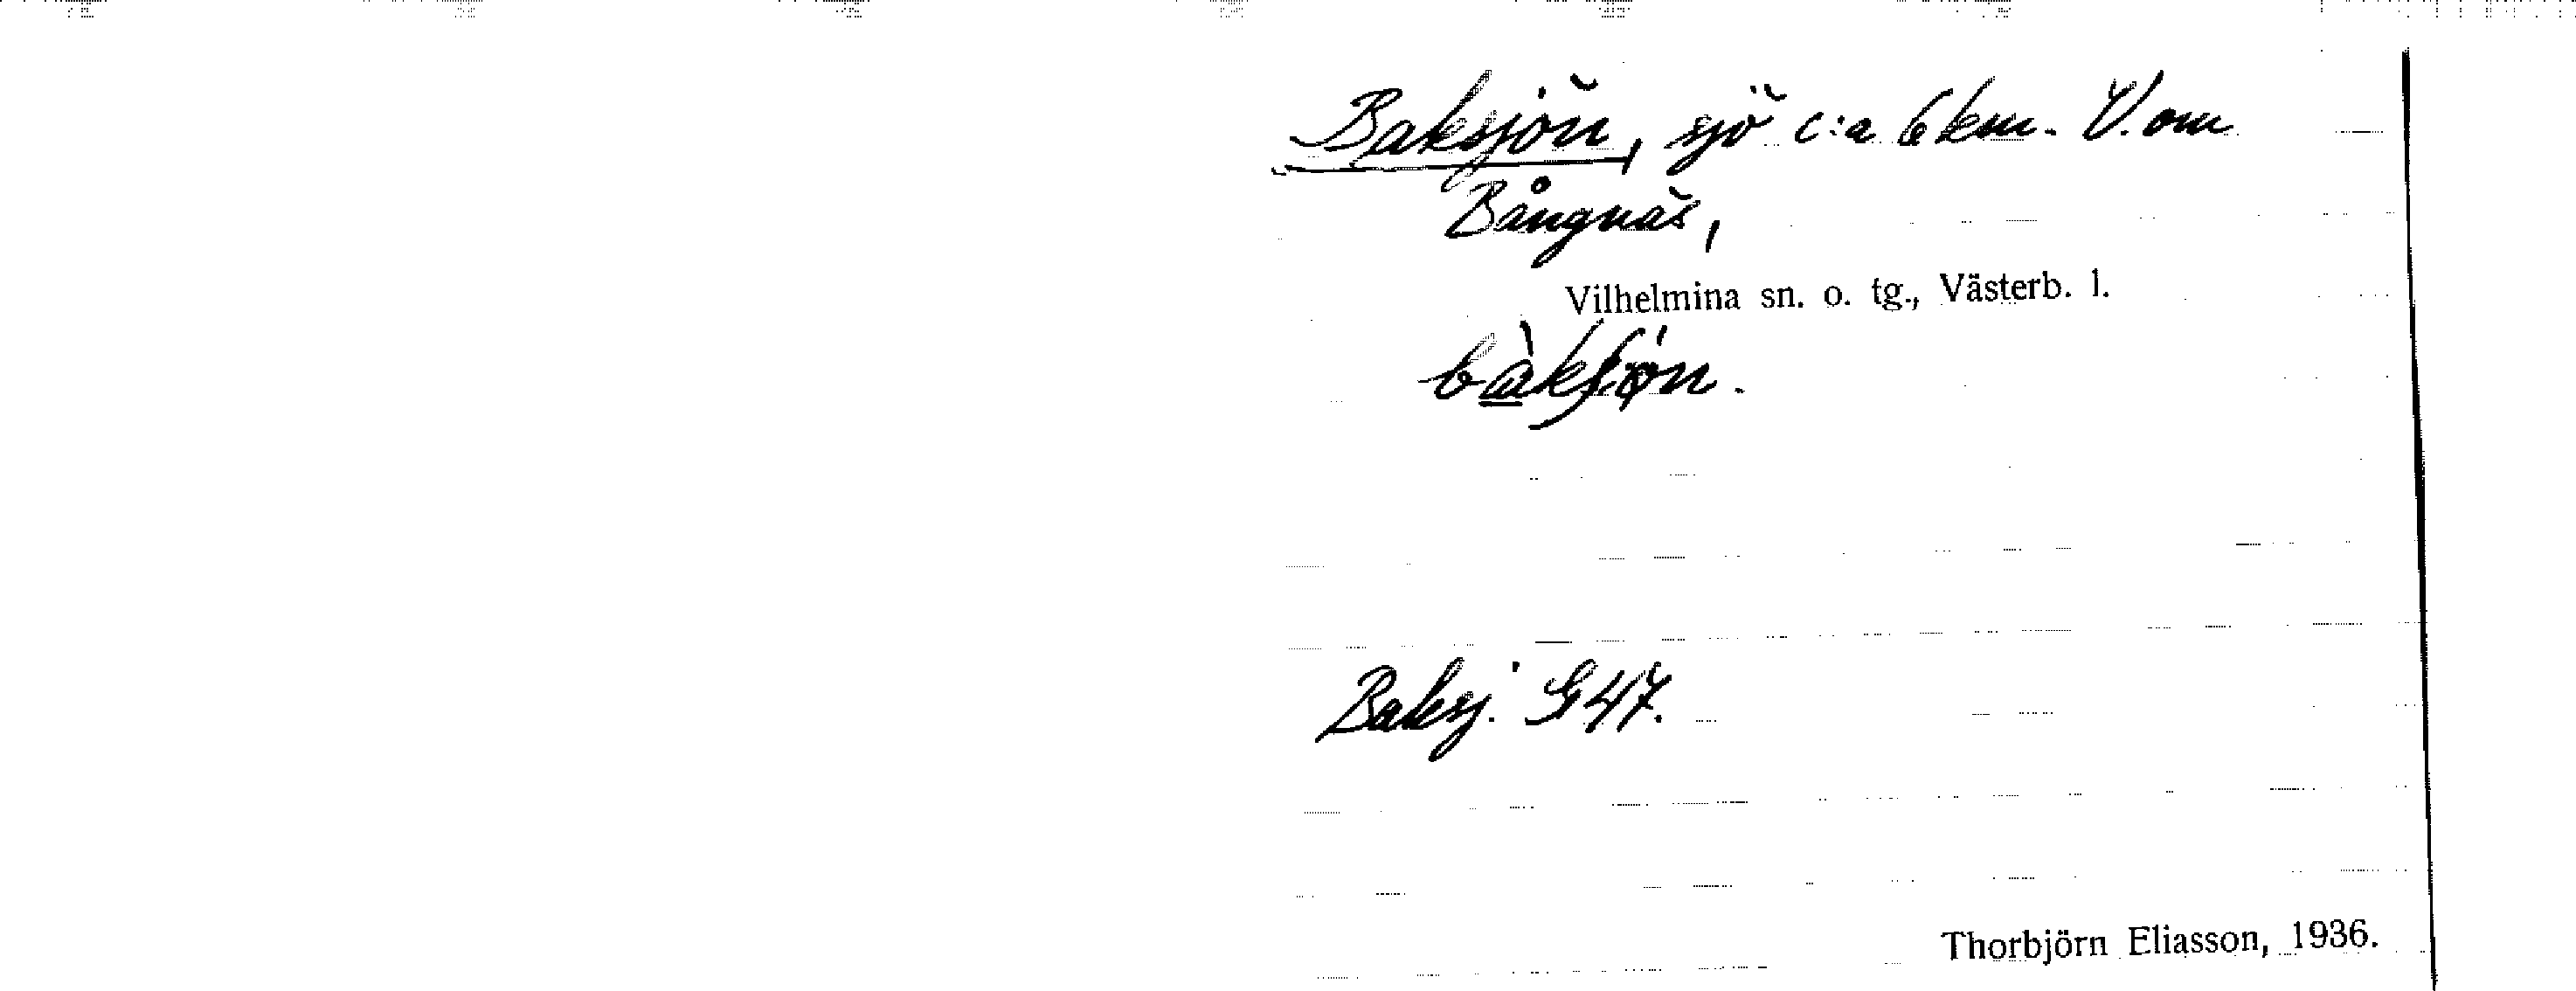 Baksjön, sjö c:a 6 km. V. om
Bångnäs,
Vilhelmina sn. o. tg., Västerb. l.
Baksj. G 47.
Thorbjörn Eliasson, 1936.